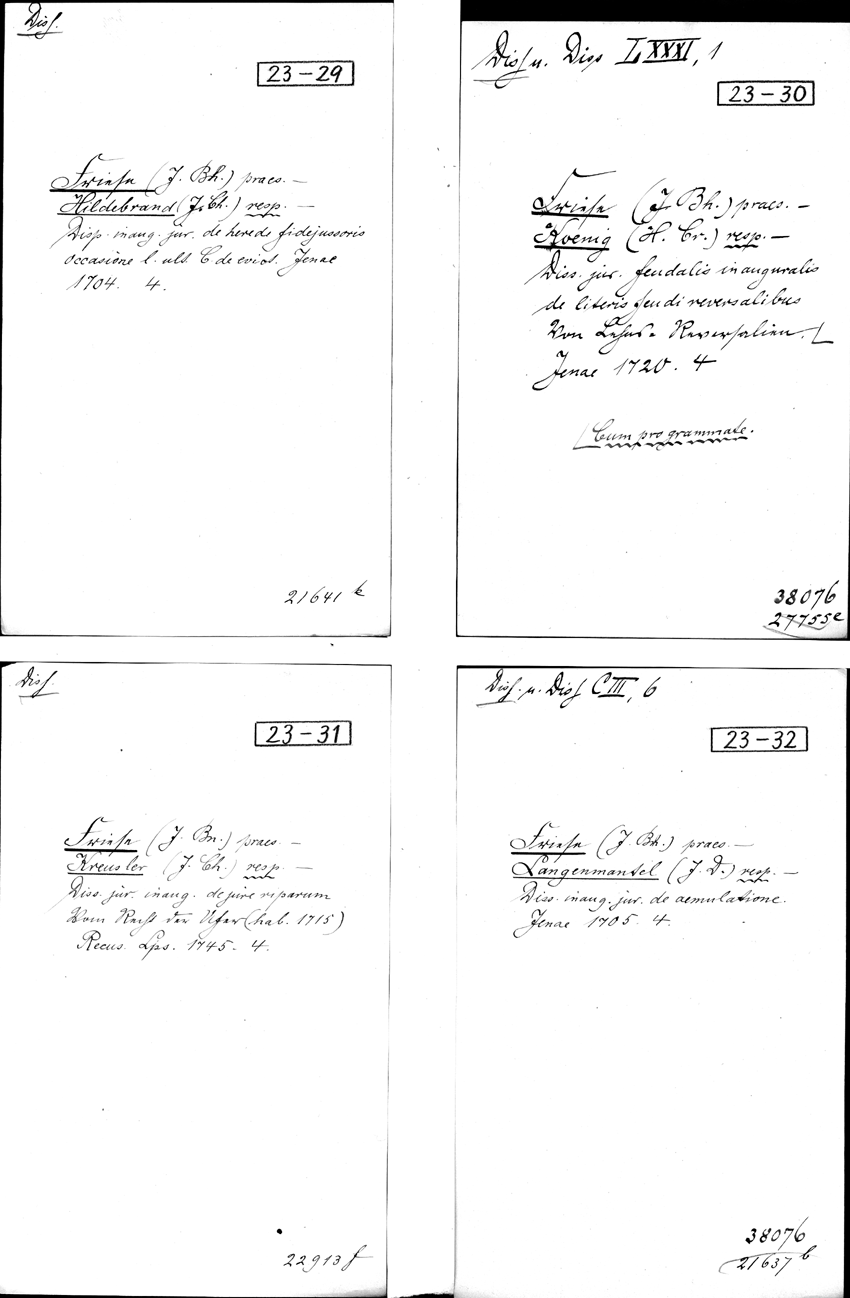 Diss.
23-29
Friese (J. Bh.) praes. —
Hildebrand (J. Ch.) resp. —
Disp. inaug. jur. de herede fidejussoris
occasione l. ult. C. de evict. Jenae
1704. 4.
21641 k
Diss. u. Diss LXXXI, 1
23-30
Friese (J. Bh.) praes. —
Koenig (H. Cr.) resp. —
Diss. jur. feudalis inauguralis
de literis feudi reversalibus
Von Lehns-Reversalien.
Jenae 1720. 4
Cum programmate.
38076
27755e
Diss.
23-31
Friese (J. Bn.) praes. —
Kreusler (J. Ch.) resp. —
Diss. jur. inaug. de jure riparum
Vom Recht der Ufer (hab. 1715)
Recus. Lps. 1745. 4.
22913 f
Diss. u. Diss CIII, 6
23-32
Friese (J. Bh.) praes. —
Langenmantel (J. D.) resp. —
Diss. inaug. jur. de aemulatione.
Jenae 1705. 4.
38076
21637 b